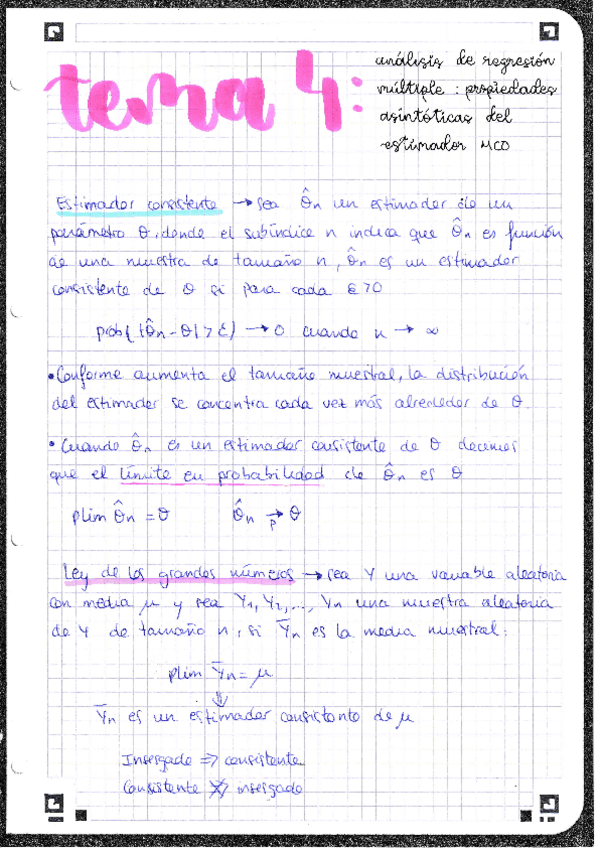 tema 4:
análisis de regresión
múltiple : propiedades
asintóticas del
estimador MCO
Estimador consistente → sea θ̂n un estimador de un
parámetro θ, donde el subíndice n indica que θ̂n es función
de una muestra de tamaño n, θ̂n es un estimador
consistente de θ si para cada ε>0
prob(|θ̂n - θ| > ε) → 0 cuando n → ∞
• Conforme aumenta el tamaño muestral, la distribución
del estimador se concentra cada vez más alrededor de θ.
• Cuando θ̂n es un estimador consistente de θ decimos
que el límite en probabilidad de θ̂n es θ
plim θ̂n = θ θ̂n →p θ
Ley de los grandes números → sea Y una variable aleatoria
con media μ y sea Y1, Y2, ..., Yn una muestra aleatoria
de Y de tamaño n, si Ȳn es la media muestral:
plim Ȳn = μ
⇓
Ȳn es un estimador consistente de μ
Insesgado => consistente
Consistente ≠> insesgado